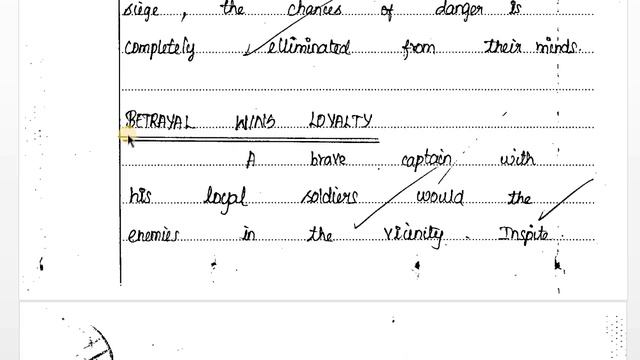 siege, the chances of danger is
completely elliminated from their minds.
BETRAYAL WINS LOYALTY
A brave captain with
his loyal soldiers would the
enemies in the vicinity. Inspite